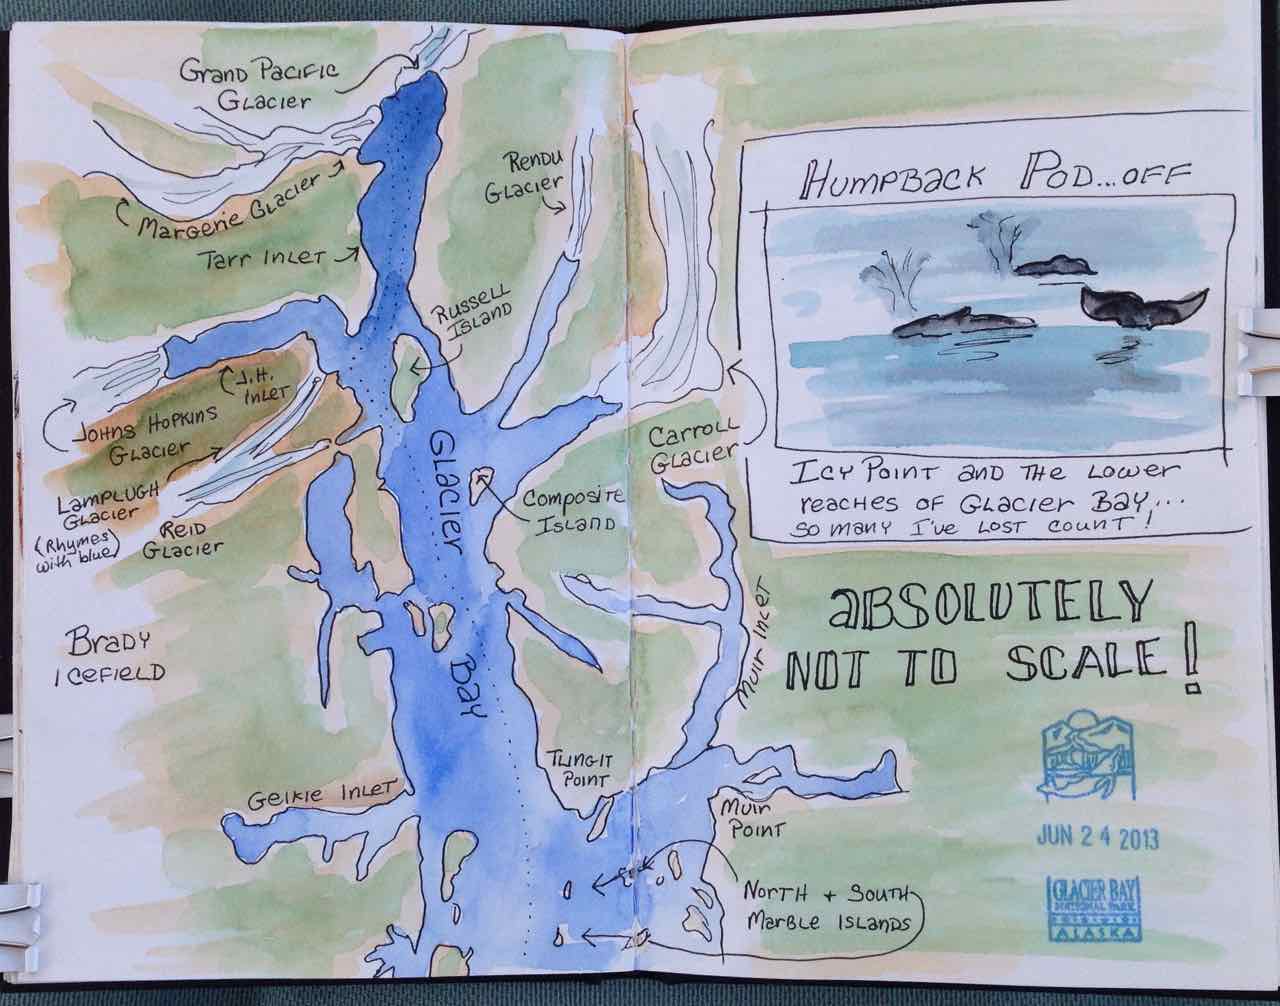 Grand Pacific
Glacier
Margerie Glacier
Tarr Inlet
Rendu
Glacier
Russell
Island
J.H.
Inlet
Johns Hopkins
Glacier
Lamplugh
Glacier
(Rhymes
with blue)
Reid
Glacier
Brady
Icefield
Glacier
Bay
Composite
Island
Carroll
Glacier
Muir Inlet
Tlingit
Point
Geikie Inlet
Muir
Point
North + South
Marble Islands
Humpback Pod...off
Icy Point and the lower
reaches of Glacier Bay...
so many I've lost count!
ABSOLUTELY
NOT TO SCALE!
JUN 24 2013
GLACIER BAY
NATIONAL PARK
ALASKA